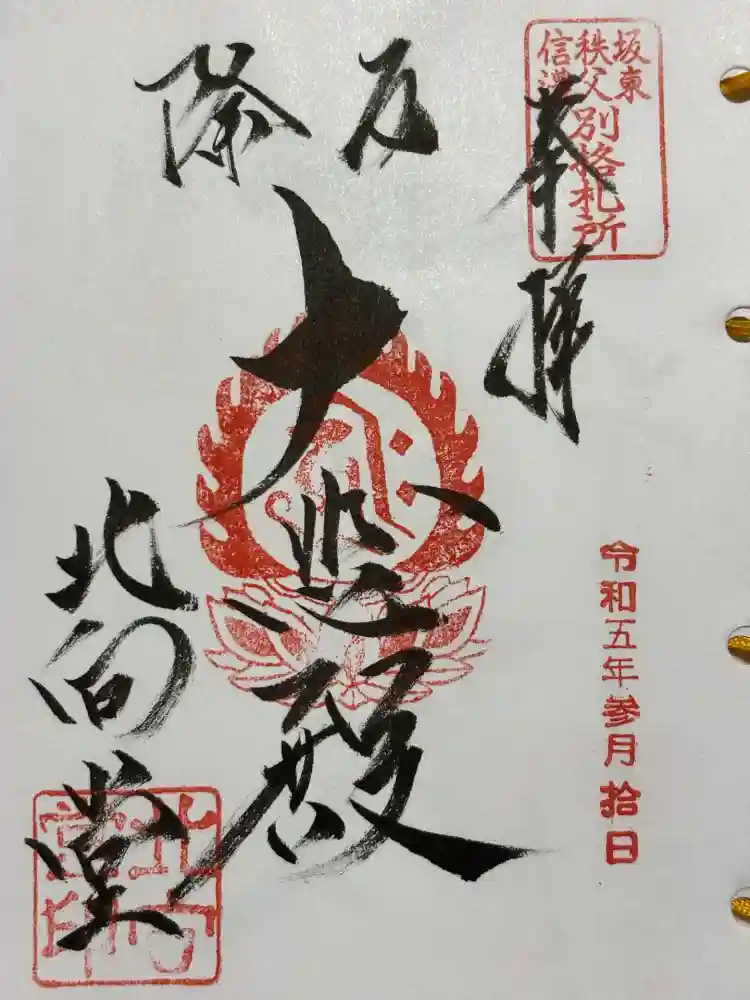 坂東
秩父
信濃
別格札所
奉拝
令和五年参月拾日
厄除
大悲殿
北向堂
北向
堂印